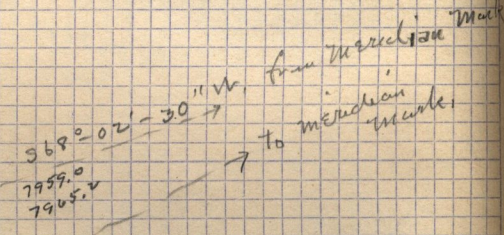 S68°-02'-30" W. from Meridian Mark
7959.0
7965.2
To meridian
mark.